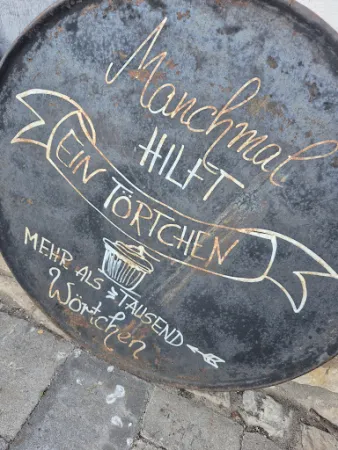 Manchmal
HILFT
EIN TÖRTCHEN
MEHR ALS TAUSEND
Wörtchen